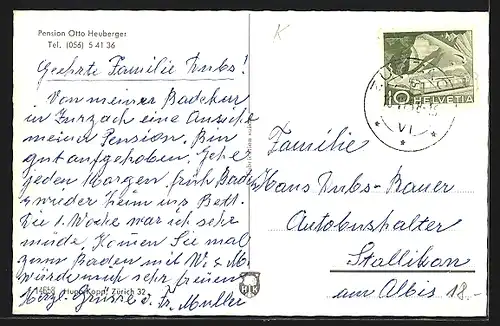 Pension Otto Heuberger
Tel. (056) 5 41 36
Geehrte Familie Dubs!
Von meiner Badekur
in Zurzach eine Ansicht
meine Pension. Bin
gut aufgehoben. Gehe
jeden Morgen früh Baden
& wieder heim ins Bett.
Die 1. Woche war ich sehr
müde. Komen Sie mal
zum Baden mit W. & M.
würde mich sehr freuen
Herzl. Grüsse v. Fr. Müller
14658 Hugo Kopp, Zürich 32
K
10 HELVETIA
VI
Familie
Hans Dubs-Bauer
Autobushalter
Stallikon
am Albis
18.-